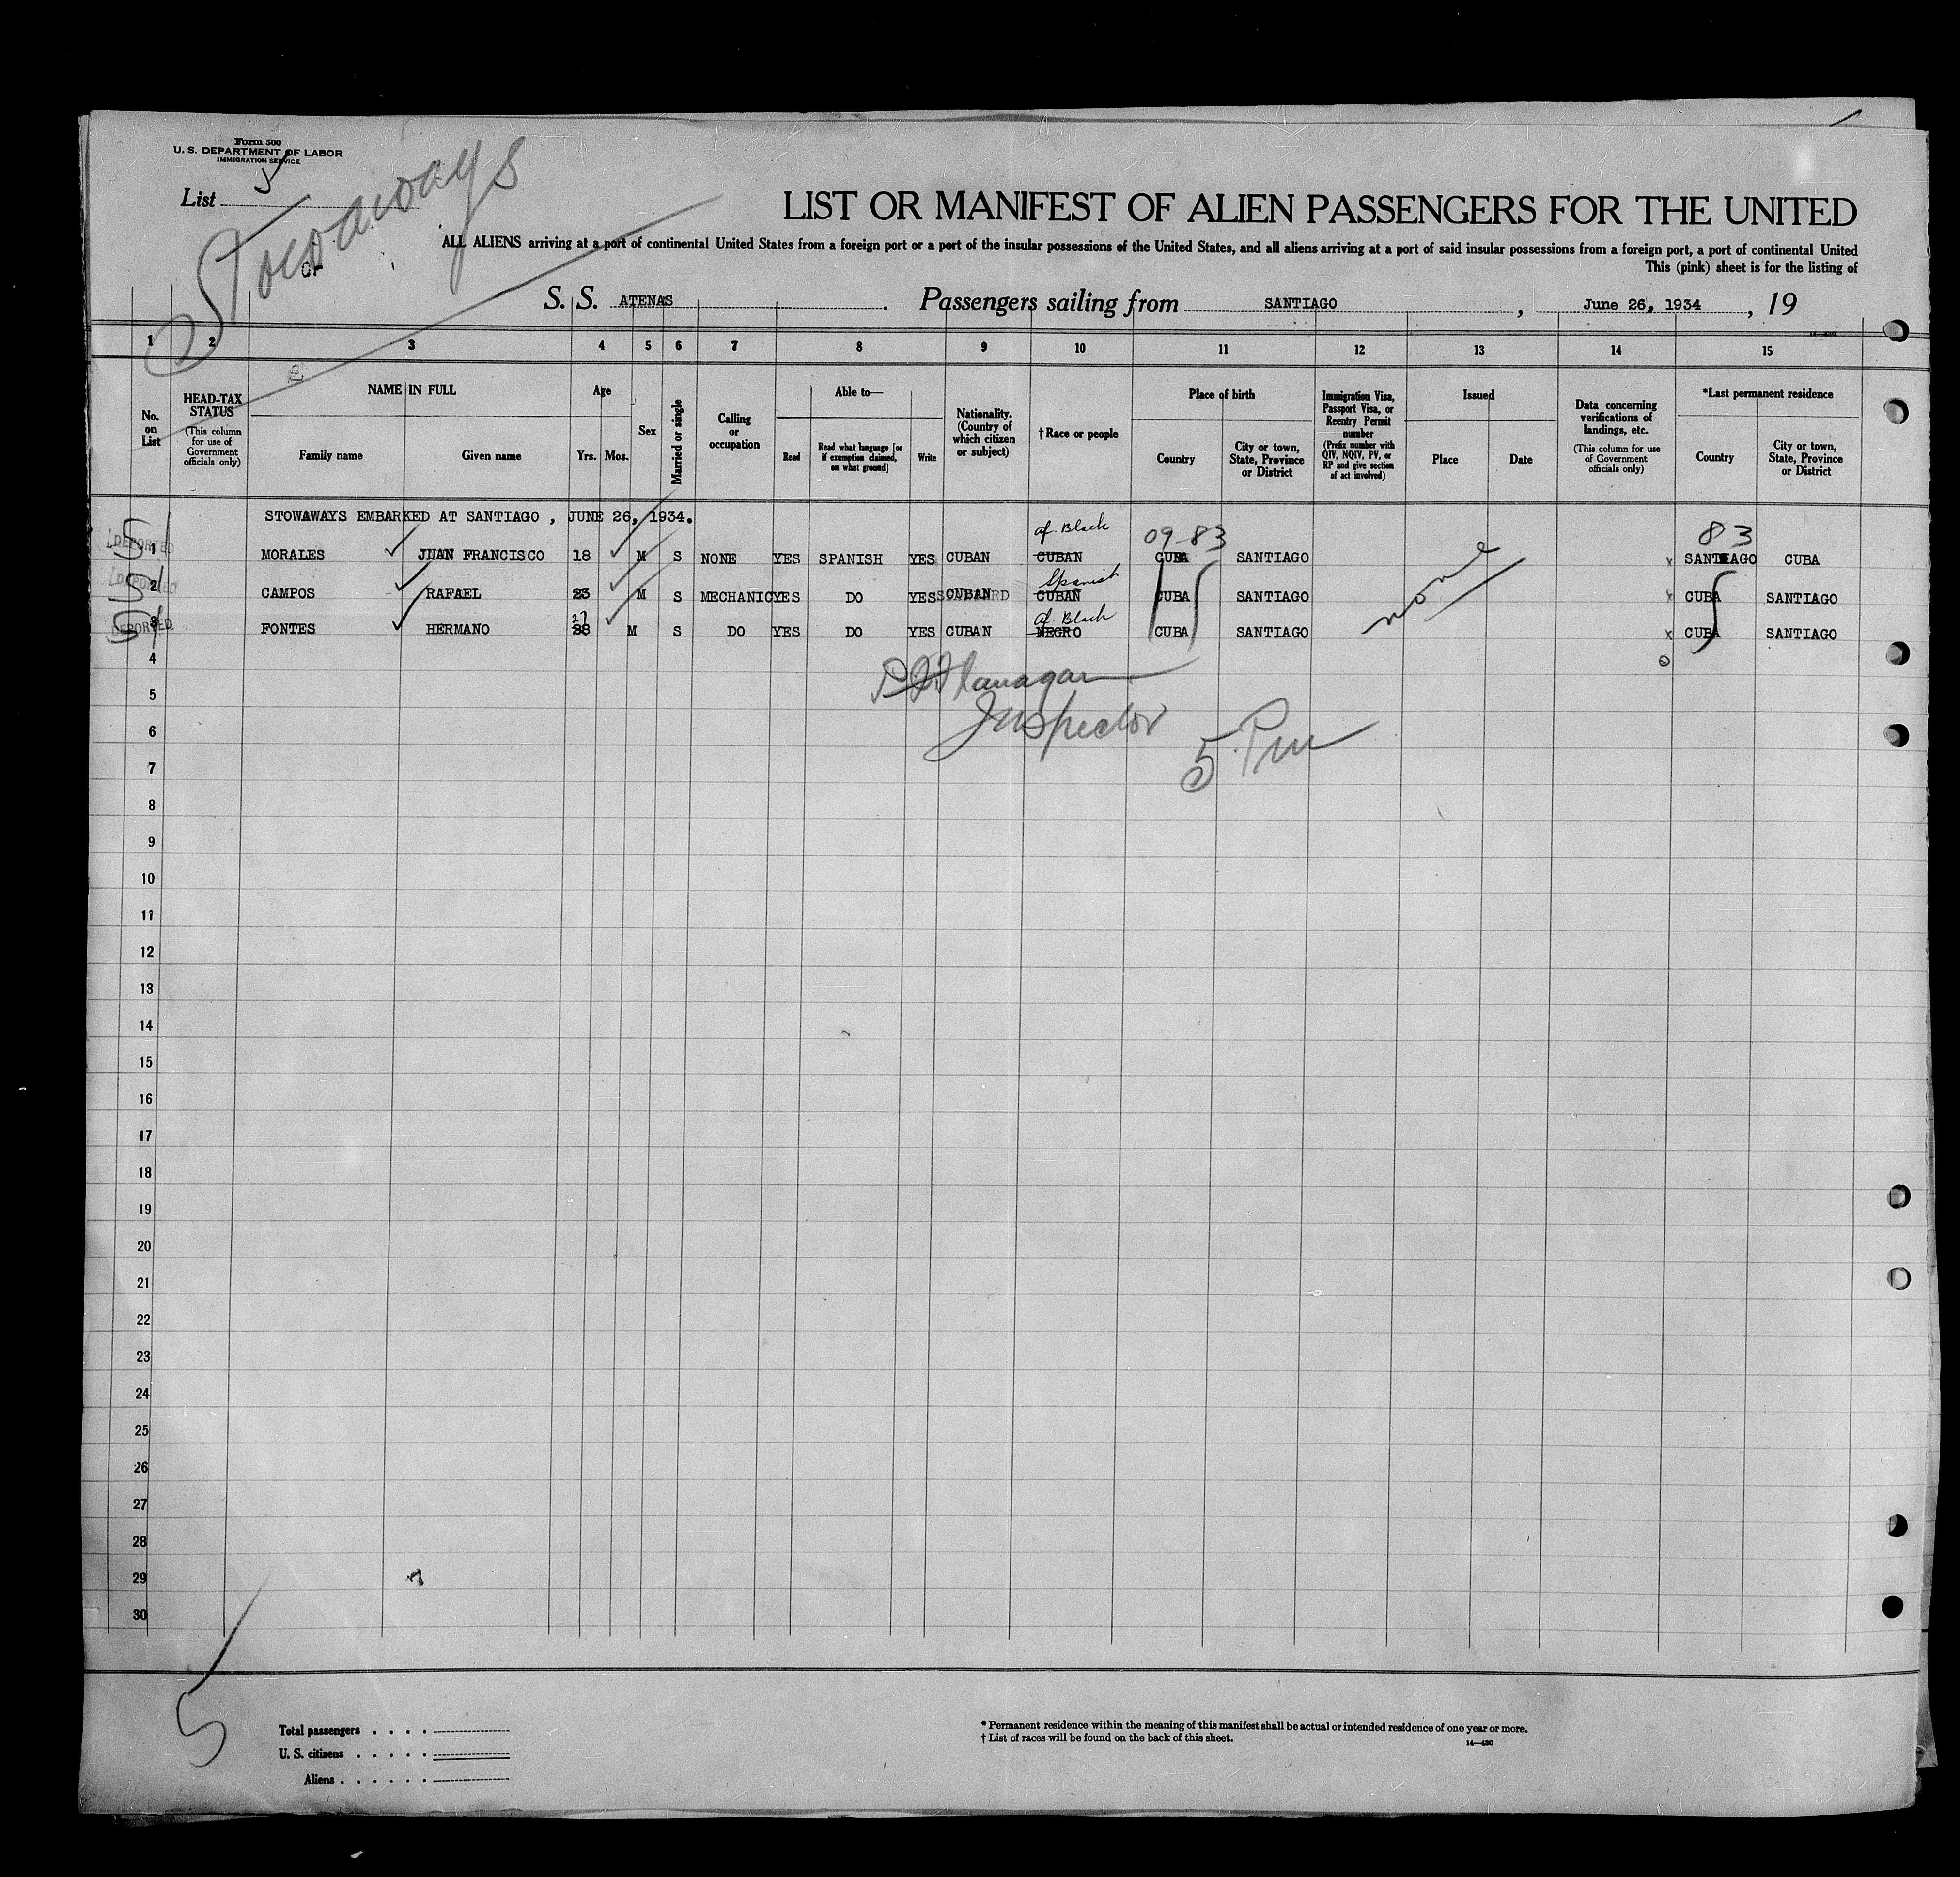 Form 500
U. S. DEPARTMENT OF LABOR
IMMIGRATION SERVICE
List 5
Stowaways
OF
LIST OR MANIFEST OF ALIEN PASSENGERS FOR THE UNITED
ALL ALIENS arriving at a port of continental United States from a foreign port or a port of the insular possessions of the United States, and all aliens arriving at a port of said insular possessions from a foreign port, a port of continental United
This (pink) sheet is for the listing of
S. S. ATENAS . Passengers sailing from SANTIAGO , June 26, 1934 , 19
1 2 3 4 5 6 7 8 9 10 11 12 13 14 15
No. on List
HEAD-TAX STATUS (This column for use of Government officials only)
NAME IN FULL
Family name Given name
Age
Yrs. Mos.
Sex
Married or single
Calling or occupation
Able to—
Read Read what language [or if exemption claimed, on what ground] Write
Nationality. (Country of which citizen or subject)
†Race or people
Place of birth
Country City or town, State, Province or District
Immigration Visa, Passport Visa, or Reentry Permit number (Prefix number with QIV, NQIV, PV, or RP and give section of act involved)
Issued
Place Date
Data concerning verifications of landings, etc. (This column for use of Government officials only)
*Last permanent residence
Country City or town, State, Province or District
STOWAWAYS EMBARKED AT SANTIAGO , JUNE 26, 1934.
af. Black 09-83 83
DEPORTED 1 MORALES JUAN FRANCISCO 18 M S NONE YES SPANISH YES CUBAN CUBAN CUBA SANTIAGO none x SANTIAGO CUBA
Spanish
DEPORTED 2 CAMPOS RAFAEL 23 M S MECHANIC YES DO YES CUBAN CUBAN CUBA SANTIAGO x CUBA SANTIAGO
27 af. Black
DEPORTED 3 FONTES HERMANO 38 M S DO YES DO YES CUBAN NEGRO CUBA SANTIAGO x CUBA SANTIAGO
4
Flanagan
5
Inspector
6
5 Pm
7
8
9
10
11
12
13
14
15
16
17
18
19
20
21
22
23
24
25
26
27
28
29
30
5
Total passengers . . . .
U. S. citizens . . . . .
Aliens . . . . . .
* Permanent residence within the meaning of this manifest shall be actual or intended residence of one year or more.
† List of races will be found on the back of this sheet.
14—430